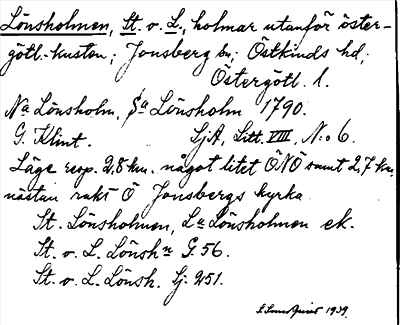 Lönsholmen, St. o. L., holmar utanför öster-
götl.-kusten; Jonsberg sn; Östkinds hd;
Östergötl. l.
Na Lönsholm, Sa Lönsholm 1790.
G. Klint. SjA, Litt. VIII, N:o 6.
Läge resp. 2,8 km. något litet ÖNÖ samt 2,7 km.
nästan rakt Ö Jonsbergs kyrka.
St. Lönsholmen, La Lönsholmen ek.
St. o. L. Lönshn G. 56.
St. o. L. Lönsh. Sj. 251.
1939.